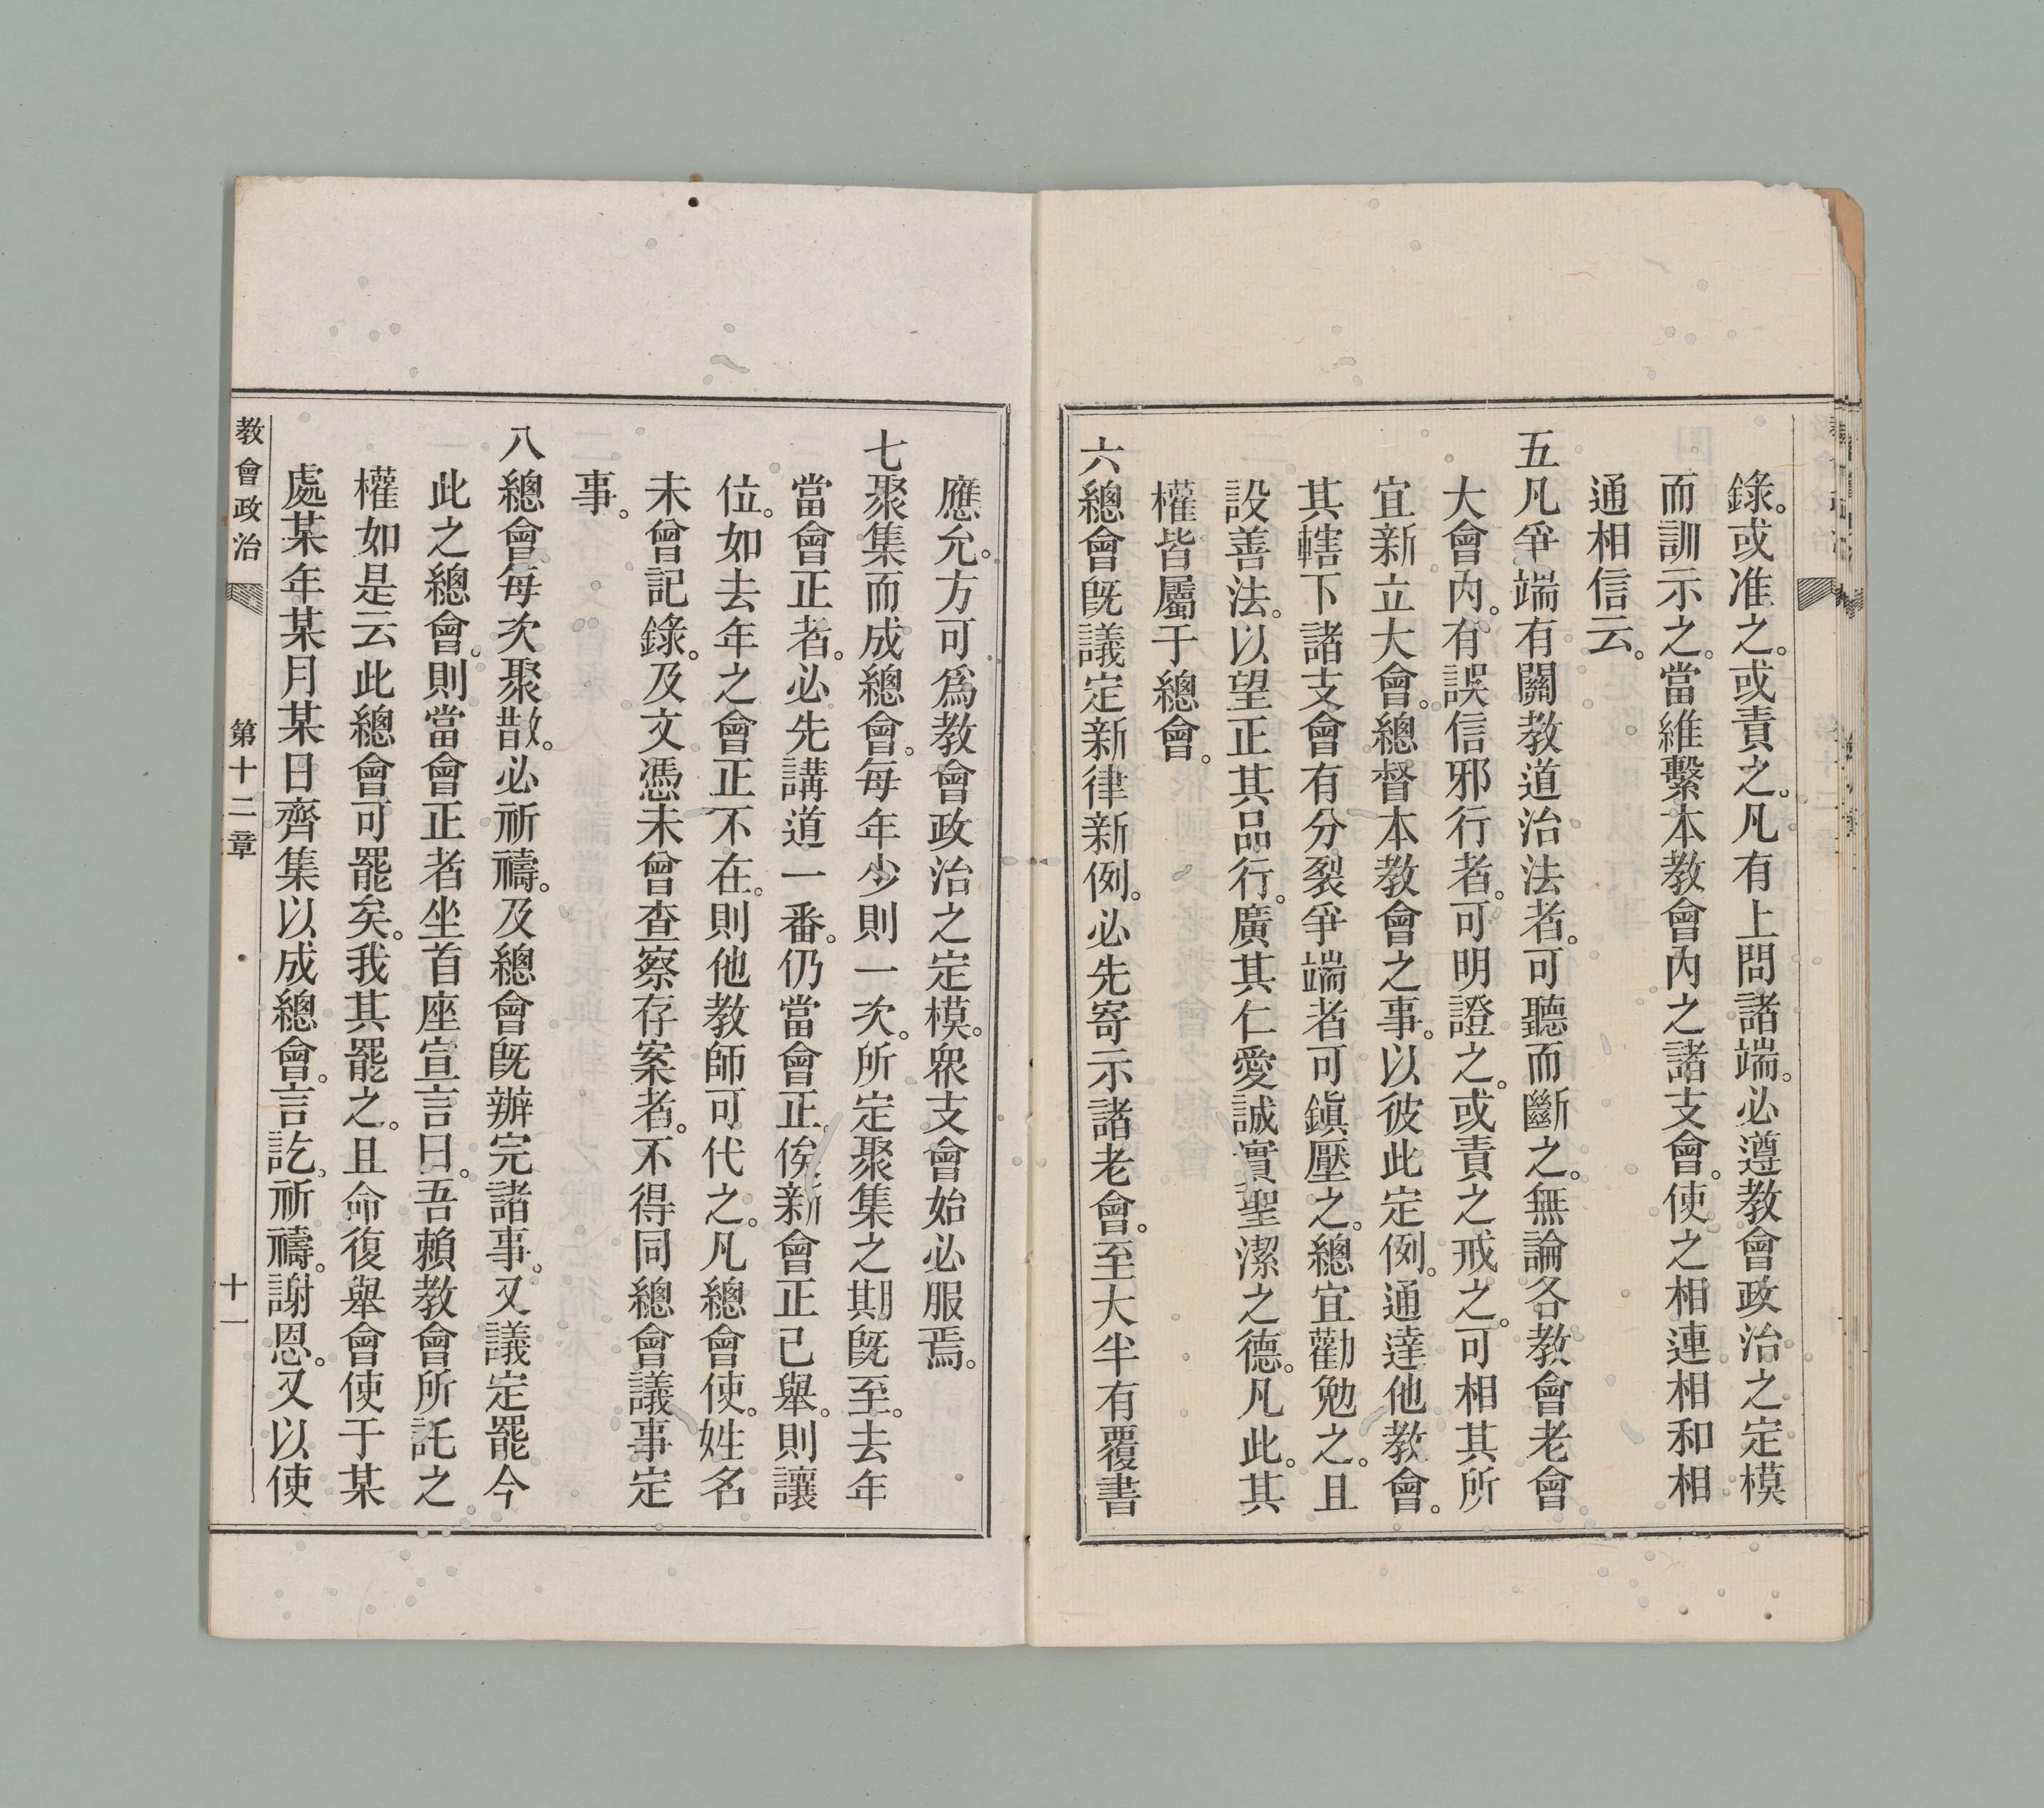 錄。或准之。或責之。凡有上問諸端。必遵教會政治之定模
而訓示之。當維繫本教會內之諸支會。使之相連相和相
通相信云。
五凡爭端有關教道治法者。可聽而斷之。無論各教會老會
大會內。有誤信邪行者。可明證之。或責之戒之。可相其所
宜新立大會。總督本教會之事。以彼此定例。通達他教會。
其轄下諸支會有分裂爭端者可鎭壓之。總宜勸勉之。且
設善法。以望正其品行。廣其仁愛誠實聖潔之德。凡此。其
權皆屬于總會。
六總會既議定新律新例。必先寄示諸老會。至大半有覆書
應允。方可爲教會政治之定模。衆支會始必服焉。
七聚集而成總會。每年少則一次。所定聚集之期既至。去年
當會正者。必先講道一番。仍當會正。俟新會正已舉。則讓
位。如去年之會正不在。則他教師可代之。凡總會使。姓名
未曾記錄。及文憑未曾查察存案者。不得同總會議事定
事。
八總會每次聚散。必祈禱。及總會既辦完諸事。又議定罷今
此之總會。則當會正者坐首座宣言曰。吾賴教會所託之
權如是云此總會可罷矣。我其罷之。且命復舉會使于某
處某年某月某日齊集以成總會。言訖。祈禱。謝恩。又以使
教會政治
第十二章
十一